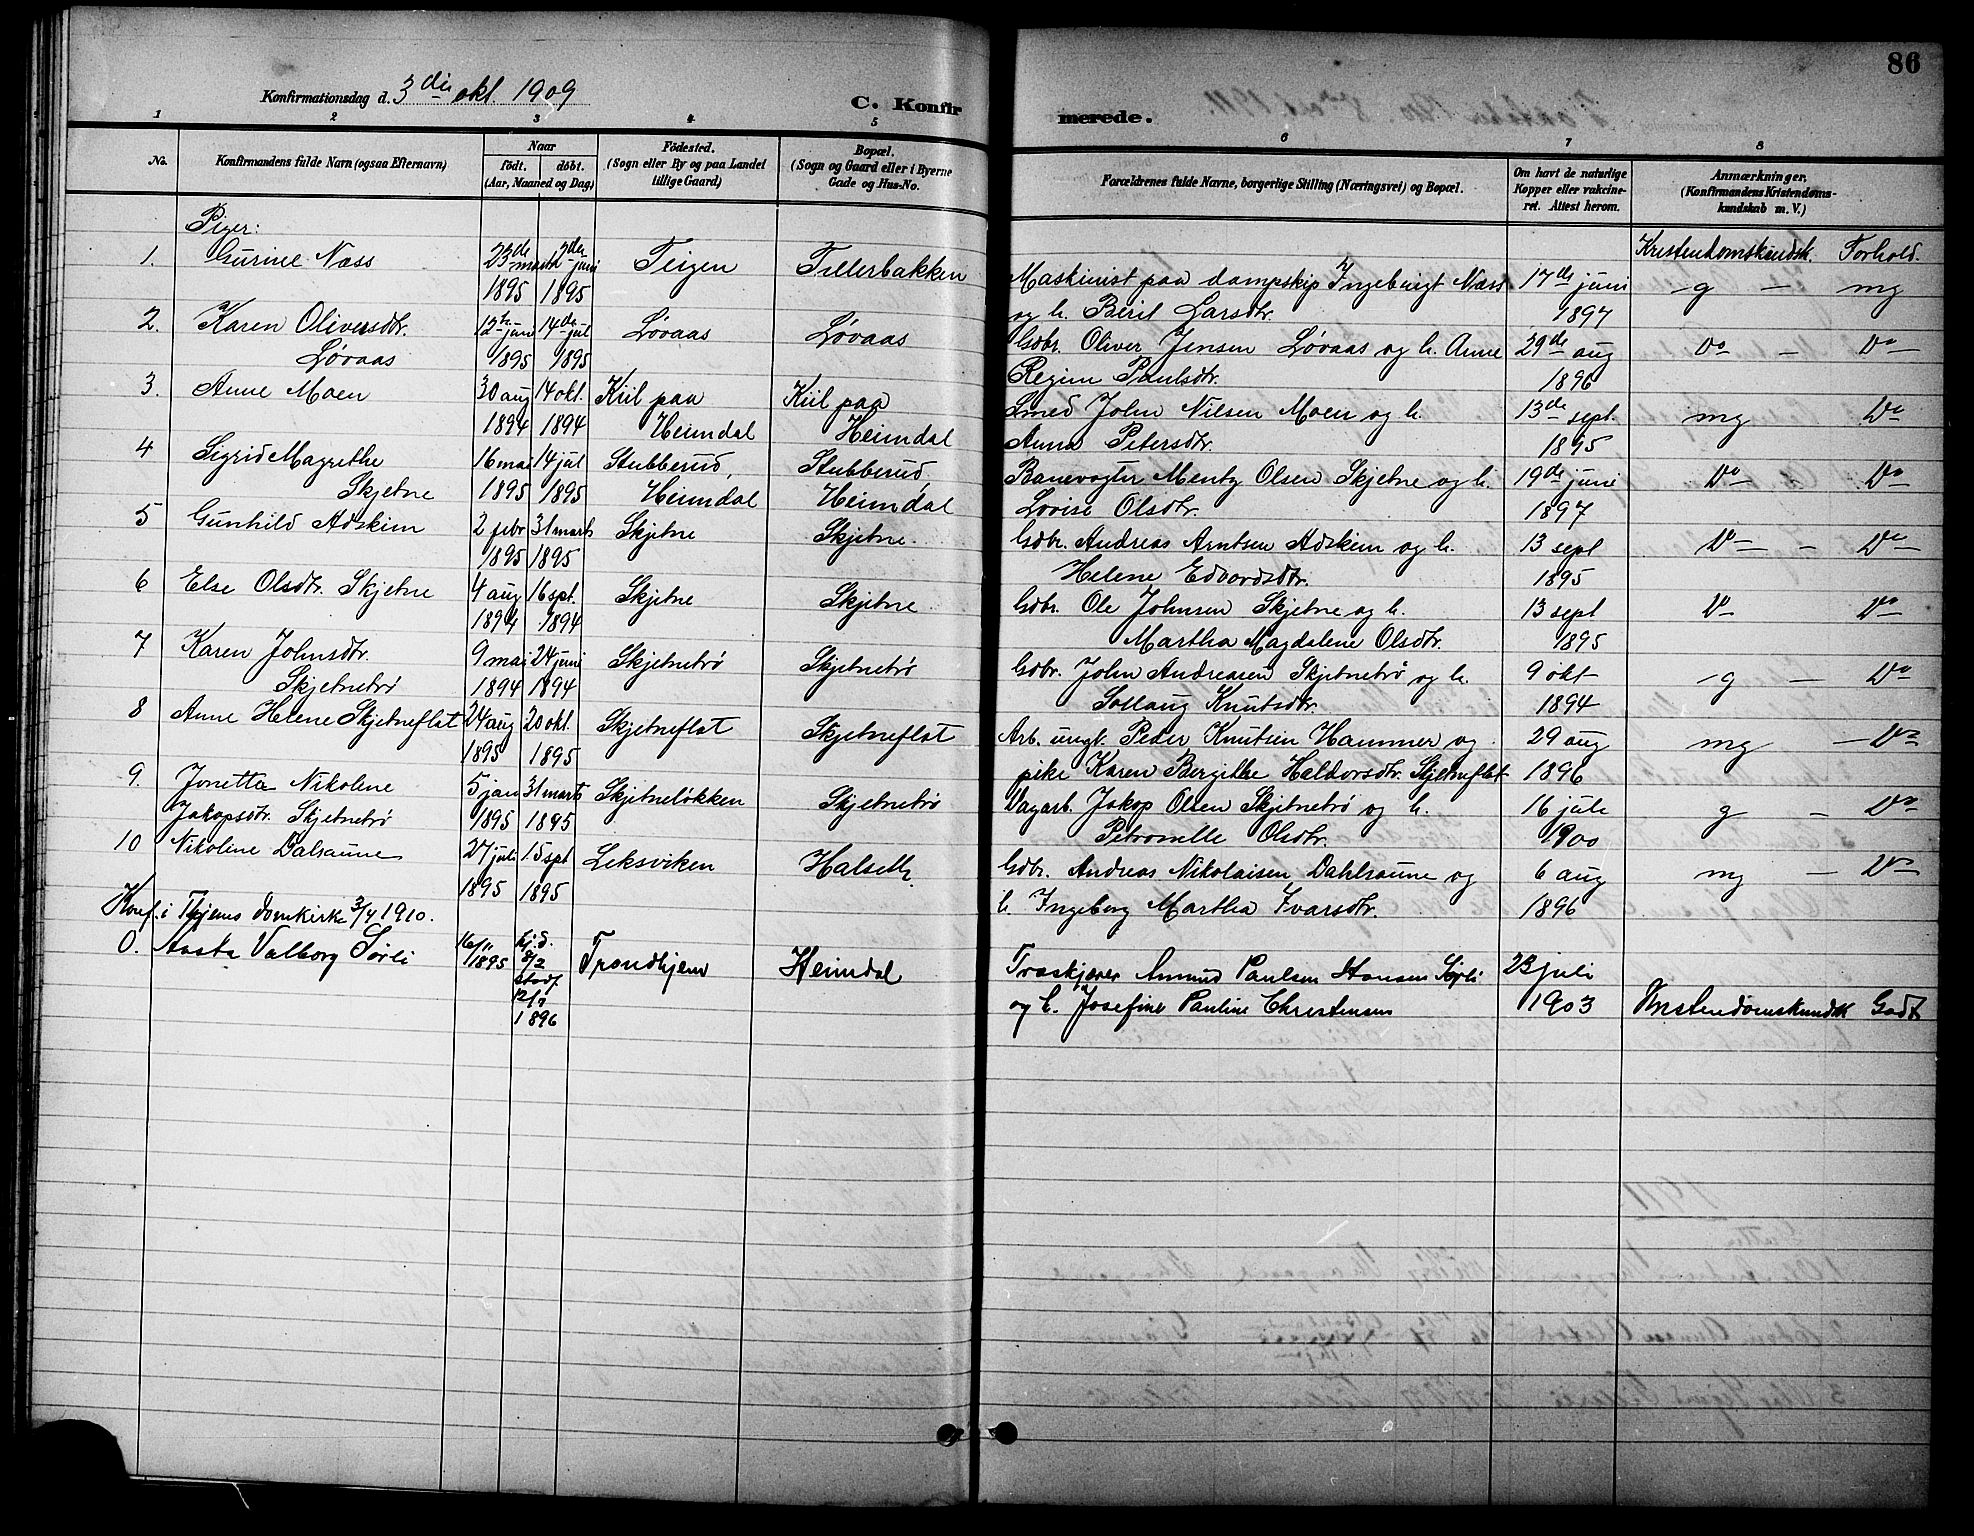 86
Konfirmationsdag d. 3die okt. 1909
C. Konfirmerede.
1 2 3 4 5 6 7 8
No. Konfirmandens fulde Navn (ogsaa Efternavn) Naar födt. döbt. (Aar, Maaned og Dag) Födested. (Sogn eller By og paa Landet tillige Gaard) Bopæl. (Sogn og Gaard eller i Byerne Gade og Hus-No. Forældrenes fulde Navne, borgerlige Stilling (Næringsvei) og Bopæl. Om havt de naturlige Kopper eller vakcineret. Attest herom. Anmærkninger. (Konfirmandens Kristendomskundskab m. V.)
Piger:
Kristendomskundsk. Forhold.
1. Gurine Næss 23de marts 1895 2den juni 1895 Teigen Tillerbakken Maskinist paa dampskip Ingebrigt Næss 17de juni - g - mg
og h. Beril Larsdtr. 1897
2. Karen Oliversdtr. 12te juni 14de jul Løvaas Løvaas Gdbr. Oliver Jensen Løvaas og h. Anne 29de aug Do - Do
Løvaas 1895 1895 Regine Paulsdtr. 1896
3. Anne Moen 30 aug 14 okt. Kiil paa Kiil paa Smed John Nilsen Moen og h. 13de sept. mg Do
1894 1894 Heimdal Heimdal Anna Petersdtr. 1895
4 Sigrid Magrethe 16 mai 14 jul Stubberud, Stubberud, Banevogter Mentz Olsen Skjetne og h. 19de juni Do - Do
Skjetne 1895 1895 Heimdal Heimdal Lovise Olsdtr. 1897
5 Gunhild Adskim 2 febr 31 marts Skjetne Skjetne. Gdbr. Andreas Arntsen Adskim og h. 13 sept Do - Do
1895 1895 Helene Edvardsdtr. 1895
6 Else Olsdtr. Skjetne 4 aug 16 spt. Skjetne Skjetne Gdbr. Ole Johnsen Skjetne og h. 13 sept Do Do
1894 1894 Martha Magdalene Olsdtr. 1895
7 Karen Johnsdtr. 9 mai 24 juni Skjetnetrø Skjetnetrø Gdbr. John Andreasen Skjetnetrø og h. 9 okt - g - Do
Skjetnetrø 1894 1894 Sollaug Knutsdtr. 1894
8 Anne Helene Skjetneflat 24 aug 20 okt. Skjetneflat Skjetneflat Arb. ungk. Peder Knutsen Hammer og 29 aug mg - Do
1895 1895 pike Karen Bergithe Haldorsdtr. Skjetneflat 1896
9. Jonetta Nikoline 5 jan 31 marts Skjetneløkken Skjetnetrø Dagarb. Jakop Olsen Skjetnetrø og h. 16 juli g - Do
Jakopsdtr. Skjetnetrø 1895 1895 Petronelle Olsdtr. 1900
10 Nikoline Dalsaune 27 juli 15 spt Leksviken Halseth. Gdbr. Andreas Nikolaisen Dahlsaune og 6 aug mg - Do
1895 1895 h. Ingeborg Martha Ivarsdtr. 1896
Konf. i Thjems domkirke 3/4 1910.
0. Aasta Valborg Sørli 16/11 1895 hj.d. 8/2 stadf. 12/7 1896 Trondhjem Heimdal Træskjærer Amund Paulsen Hansen Sørli 23 juli
og h. Josefine Pauline Christensen 1903 Kristendomskundsk Godt